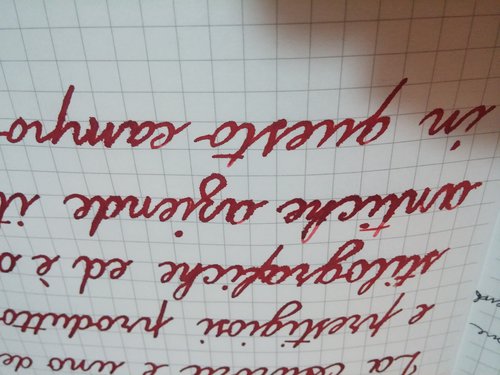 La è uno de
e prestigiosi produtto
stilografiche ed è
antiche aziende it
in questo campo